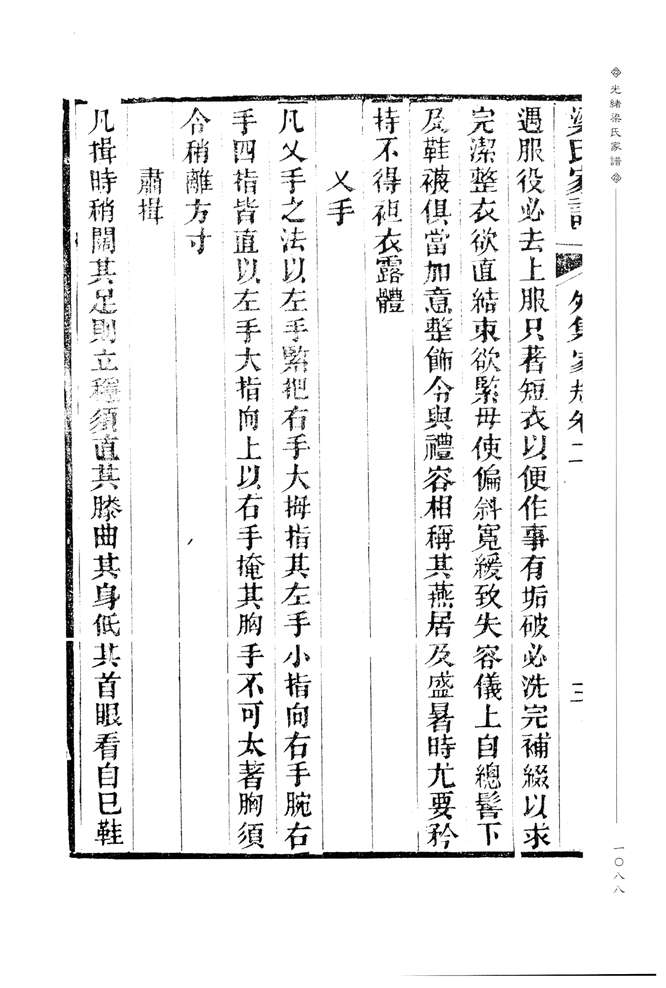 光緒梁氏家譜
一〇八八
梁氏家譜 外集家規卷二 三
遇服役必去上服只著短衣以便作事有垢破必洗完補綴以求
完潔整衣欲直結束欲緊毋使偏斜寬緩致失容儀上自總髻下
及鞋襪俱當加意整飾令與禮容相稱其燕居及盛暑時尤要矜
持不得袒衣露體
乂手
凡乂手之法以左手緊把右手大拇指其左手小指向右手腕右
手四指皆直以左手大指向上以右手掩其胸手不可太著胸須
令稍離方寸
肅揖
凡揖時稍闊其足則立穩須直其膝曲其身低其首眼看自巳鞋